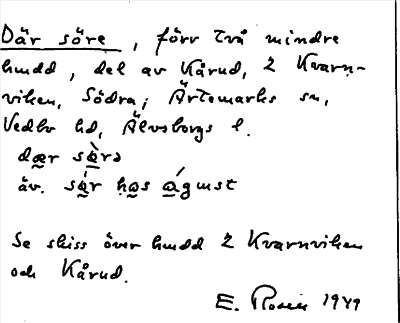 Där söre, förr två mindre
hmdd, del av Kårud, 2 Kvarn-
viken, Södra; Ärtemarks sn,
Vedbo hd, Älvsborgs l.
dær sèrə
äv. sér hos águst
Se skiss över hmdd 2 Kvarnviken
och Kårud.
E. Rosén 1949